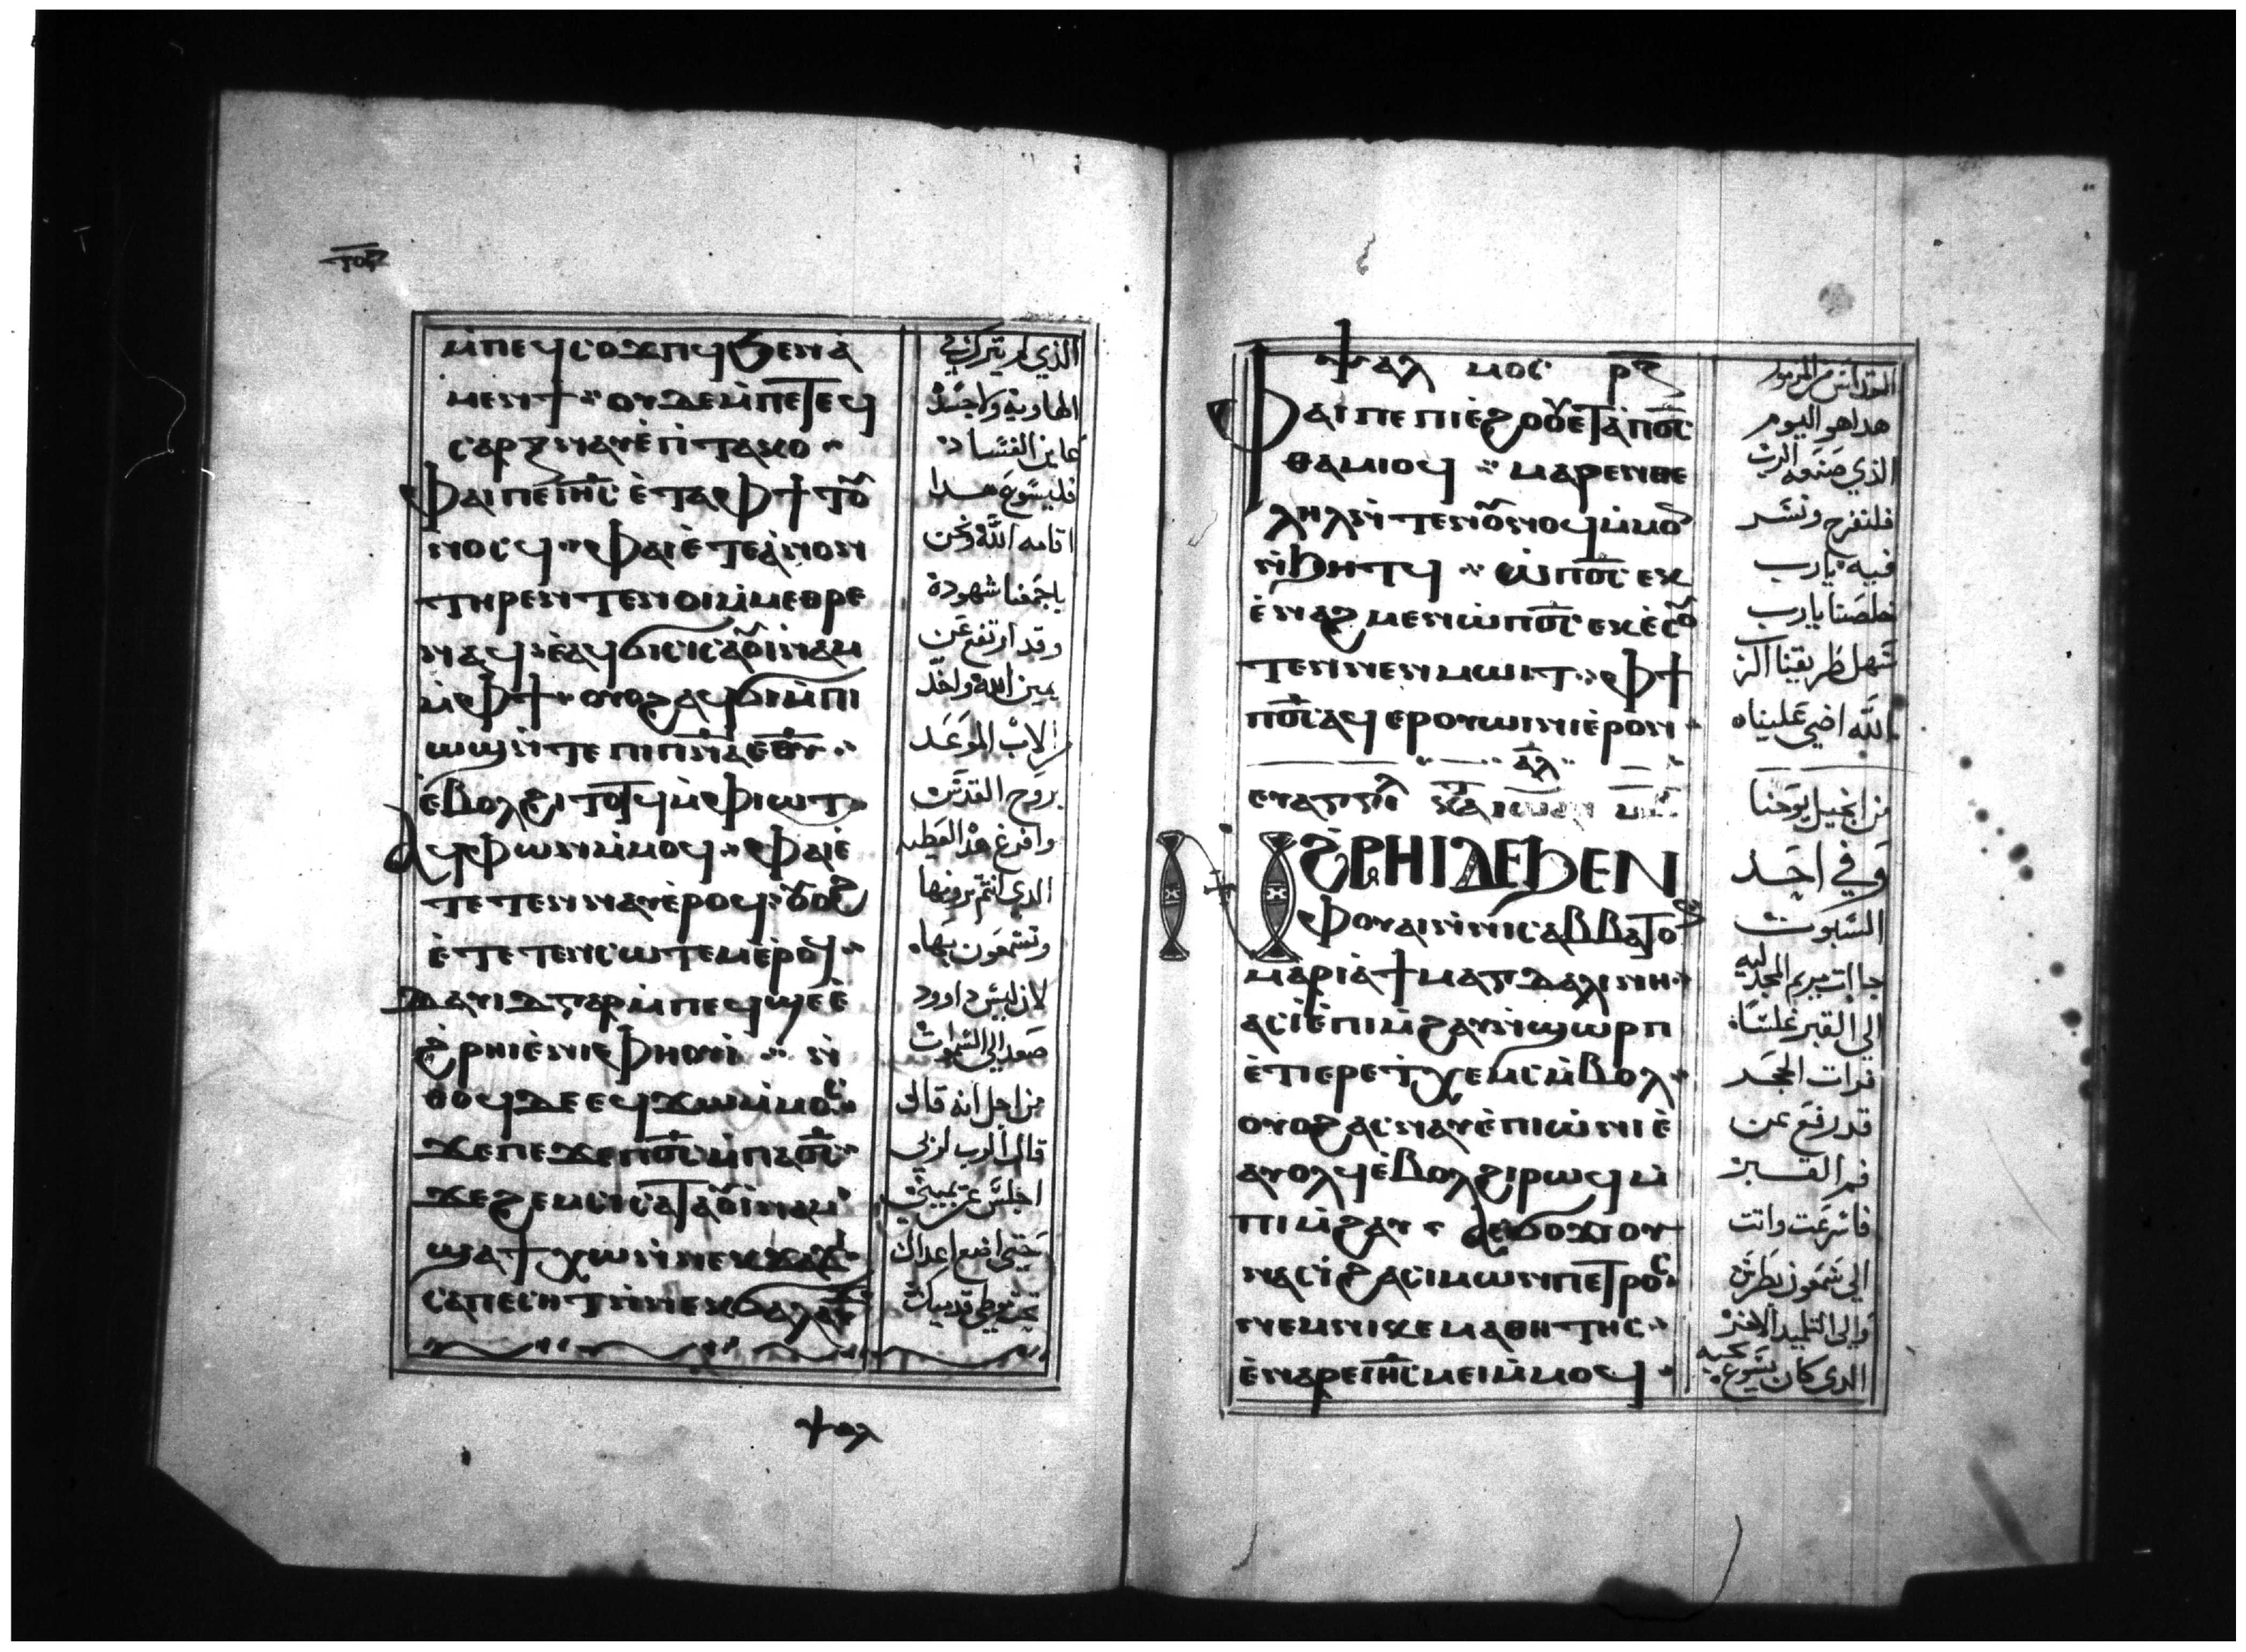 ⲙ̀ⲡⲉϥⲥⲟϫⲡϥ ϧⲉⲛⲁ̀
ⲙⲉⲛϯ ⲟⲩⲇⲉ ⲙ̀ⲡⲉⲧⲉϥ
ⲥⲁⲣⲝ ⲛⲁⲩ ⲉ̀ⲡⲓⲧⲁⲕⲟ
ⲫⲁⲓ ⲡⲉ ⲓⲏ̅ⲥ̅ ⲉ̀ⲧⲁ ⲫϯ ⲧⲟⲩ
ⲛⲟⲥϥ ⲫⲁⲓ ⲉ̀ⲧⲉ ⲁ̀ⲛⲟⲛ
ⲧⲏⲣⲉⲛ ⲧⲉⲛⲟⲓ ⲙ̀ⲙⲉⲑⲣⲉ
ⲛⲁϥ ⲉ̀ⲁϥϭⲓⲥⲓ ⲥⲁⲟⲩⲓ̀ⲛⲁⲙ
ⲙ̀ⲫϯ ⲟⲩⲟϩ ⲁϥϭⲓ ⲙ̀ⲡⲓ
ⲱϣ ⲛ̀ⲧⲉ ⲡⲓⲡ̅ⲛ̅ⲁ̅ ⲉ̅ⲑ̅ⲩ̅
ⲉ̀ⲃⲟⲗ ϩⲓⲧⲟⲧϥ ⲙ̀ⲫⲓⲱⲧ
ⲁϥⲫⲱⲛ ⲙ̀ⲙⲟϥ ⲫⲁⲓ ⲉ̀
ⲧⲉⲧⲉⲛⲛⲁⲩ ⲉ̀ⲣⲟϥ ⲟⲩⲟϩ
ⲉ̀ⲧⲉⲧⲉⲛⲥⲱⲧⲉⲙ ⲉ̀ⲣⲟϥ
ⲇⲁⲩⲓⲇ ⲅⲁⲣ ⲙ̀ⲡⲉϥϣⲉ ⲉ̀
ϩ̀ⲣⲏⲓ ⲉ̀ⲛⲓⲫⲏⲟⲩⲓ̀ ⲛ̀
ⲑⲟϥ ⲇⲉ ⲉϥϫⲱ ⲙ̀ⲙⲟⲥ
ϫⲉ ⲡⲉϫⲉ ⲡ̅ⲟ̅ⲥ̅ ⲙ̀ⲡⲁⲟ̅ⲥ̅
ϫⲉ ϩⲉⲙⲥⲓ ⲥⲁⲧⲁⲟⲩⲓ̀ⲛⲁⲙ
ϣⲁϯⲭⲱ ⲛ̀ⲛⲉⲕϫⲁϫⲓ
ⲥⲁⲡⲉⲥⲏⲧ ⲛ̀ⲛⲉⲕϭⲁⲗⲁⲩϫ
الذي لم يترك في
الهاوية ولا جسده
عاين الفساد
فليسوع هدا
اقامه الله ونحن
باجمعنا شهودة
وقد ارتفع عن
يمين الله واخد
الاب الموعد
بروح القدس
وافرغ هدا العطيه
الدي انتم ترونها
وتسمعون بها
لان ليس داوود
صعد الي السموات
من اجل انه قال
قال الرب لربي
اجلس عن يميني
حتي اضع اعداك
تحت موطي قدميك
ⲯⲁⲗ
ⲯⲁⲗⲙⲟⲥ ⲣ̅ⲓ̅ⲍ̅
ⲫⲁⲓ ⲡⲉ ⲡⲓⲉ̀ϩⲟⲟⲩ ⲉⲧⲁ ⲡ̅ⲟ̅ⲥ̅
ⲑⲁⲙⲓⲟϥ ⲙⲁⲣⲉⲛⲑⲉ
ⲗⲏⲗ ⲛ̀ⲧⲉⲛⲟⲩⲛⲟϥ ⲙ̀ⲙⲟⲛ
ⲛ̀ϧⲏⲧϥ ⲱ̀ ⲡ̅ⲟ̅ⲥ̅ ⲉⲕ
ⲉ̀ⲛⲁϩⲙⲉⲛ ⲱ̀ ⲡ̅ⲟ̅ⲥ̅ ⲉⲕⲉ̀ⲥⲟⲩ
ⲧⲉⲛ ⲛⲉⲛⲙⲱⲓⲧ ⲫϯ
ⲡ̅ⲟ̅ⲥ̅ ⲁϥⲉⲣⲟⲩⲱⲓⲛⲓ ⲉ̀ⲣⲟⲛ
ⲁⲗ
ⲉⲩⲁⲅⲅⲉⲗ ⲕⲁⲧⲁ ⲓⲱⲁⲛ
ⲛ̀ϩ̀ⲣⲏⲓ ⲇⲉ ϧⲉⲛ
ⲫⲟⲩⲁⲓ ⲛ̀ⲛⲓⲥⲁⲃⲃⲁⲧⲟⲛ
ⲙⲁⲣⲓⲁ̀ ϯⲙⲁⲅⲇⲁⲗⲓⲛⲏ
ⲁⲥⲓ̀ ⲉ̀ⲡⲓⲙ̀ϩⲁⲩ ⲛ̀ϣⲱⲣⲡ
ⲉ̀ⲧⲓ ⲉⲣⲉ ⲧⲭⲉⲙⲥ ⲙ̀ⲃⲟⲗ
ⲟⲩⲟϩ ⲁⲥⲛⲁⲩ ⲉ̀ⲡⲓⲱ̀ⲛⲓ ⲉ̀
ⲁⲩⲟⲗϥ ⲉ̀ⲃⲟⲗ ϩⲓⲣⲱϥ ⲙ̀
ⲡⲓⲙ̀ϩⲁⲩ ⲁⲥϭⲟϫⲓ ⲟⲩⲛ
ⲛⲁⲥⲓ̀ ϩⲁ ⲥⲓⲙⲱⲛ ⲡⲉⲧⲣⲟⲥ
ⲛⲉⲙ ⲛⲓⲕⲉⲙⲁⲑⲏⲧⲏⲥ
ⲉ̀ⲛⲁⲣⲉ ⲓⲏ̅ⲥ̅ ⲙⲉⲓ ⲙ̀ⲙⲟϥ
هدا هو اليوم
الذي صنعه الرب
فلنفرح ونسر
فيه يارب
خلصنا يارب
سهل طريقنا الرب
الله اضي علينا
من انجيل يوحنا
وفي احد
السبوت
جاات مريم المجدليه
الي القبر غلسا
فرات الحجر
قد رفع عن
فم القبر
فاسرعت واتت
الي سمعون بطرس
والي التلميد الاخر
الدي كان يسوع يحبه